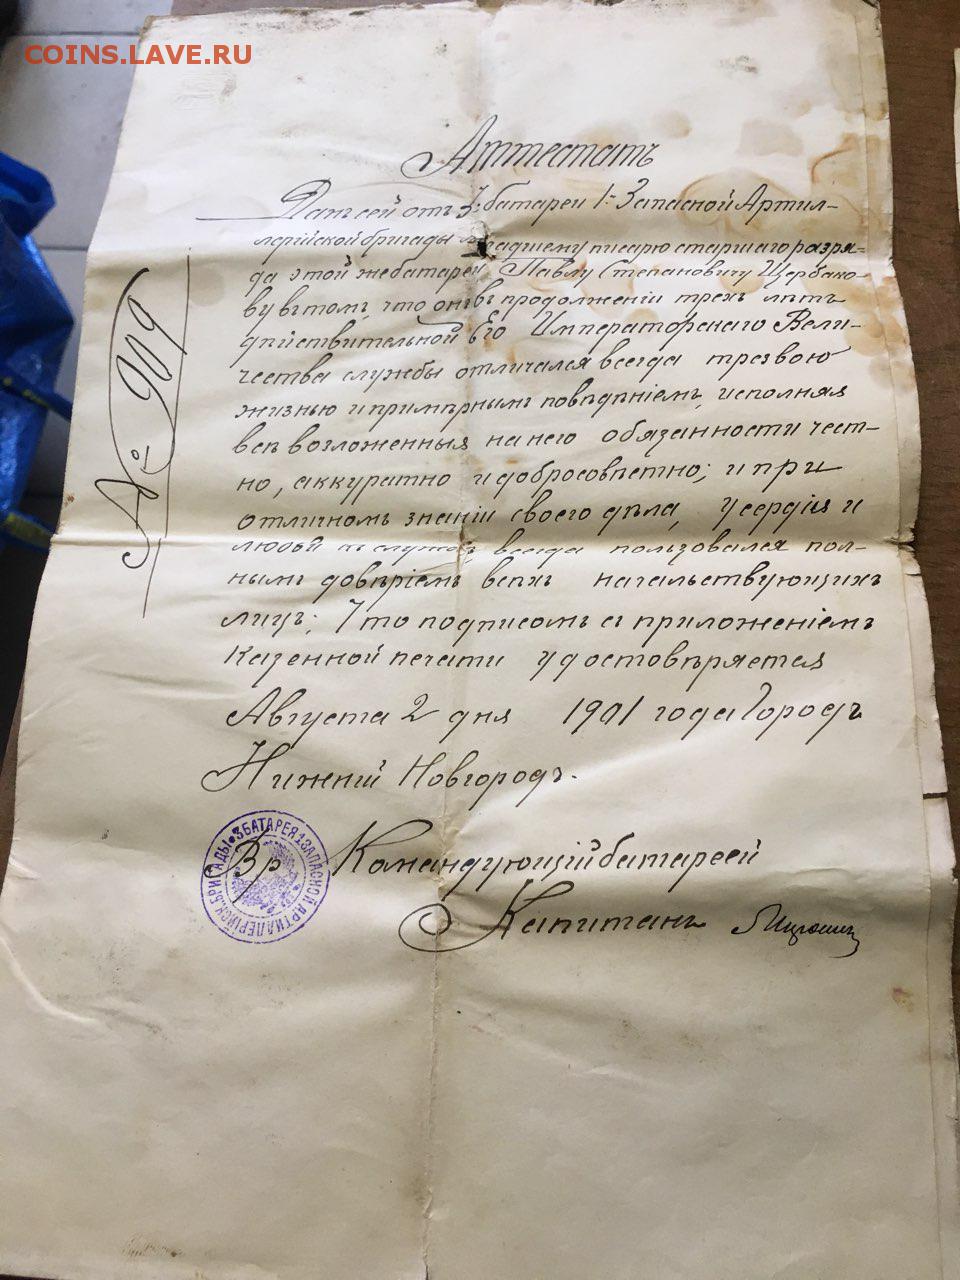 COINS.LAVE.RU
Аттестатъ
№ 909
Данъ сей отъ 3й батареи 1й Запасной Артил-
лерійской бригады младшему писарю старшаго разря-
да этой же батареи, Павлу Степановичу Щербако-
ву въ томъ, что онъ въ продолженіи трехъ лѣтъ
дѣйствительной Его Императорскаго Вели-
чества службы отличался всегда трезвою
жизнью и примѣрнымъ поведѣніемъ, исполняя
всѣ возложенныя на него обязанности чест-
но, аккуратно и добросовѣстно; и при
отличномъ знаніи своего дѣла, усердія и
любви къ службѣ, всегда пользовался пол-
нымъ довѣріемъ всѣхъ начальствующихъ
лицъ; Что подписомъ съ приложеніемъ
казенной печати удостовѣряется
Августа 2 дня 1901 года Городъ
Нижній Новгородъ.
Вр Командующій батареей
Капитанъ
3 БАТАРЕЯ 1 ЗАПАСНОЙ АРТИЛЛЕРІЙСК. БРИГАДЫ